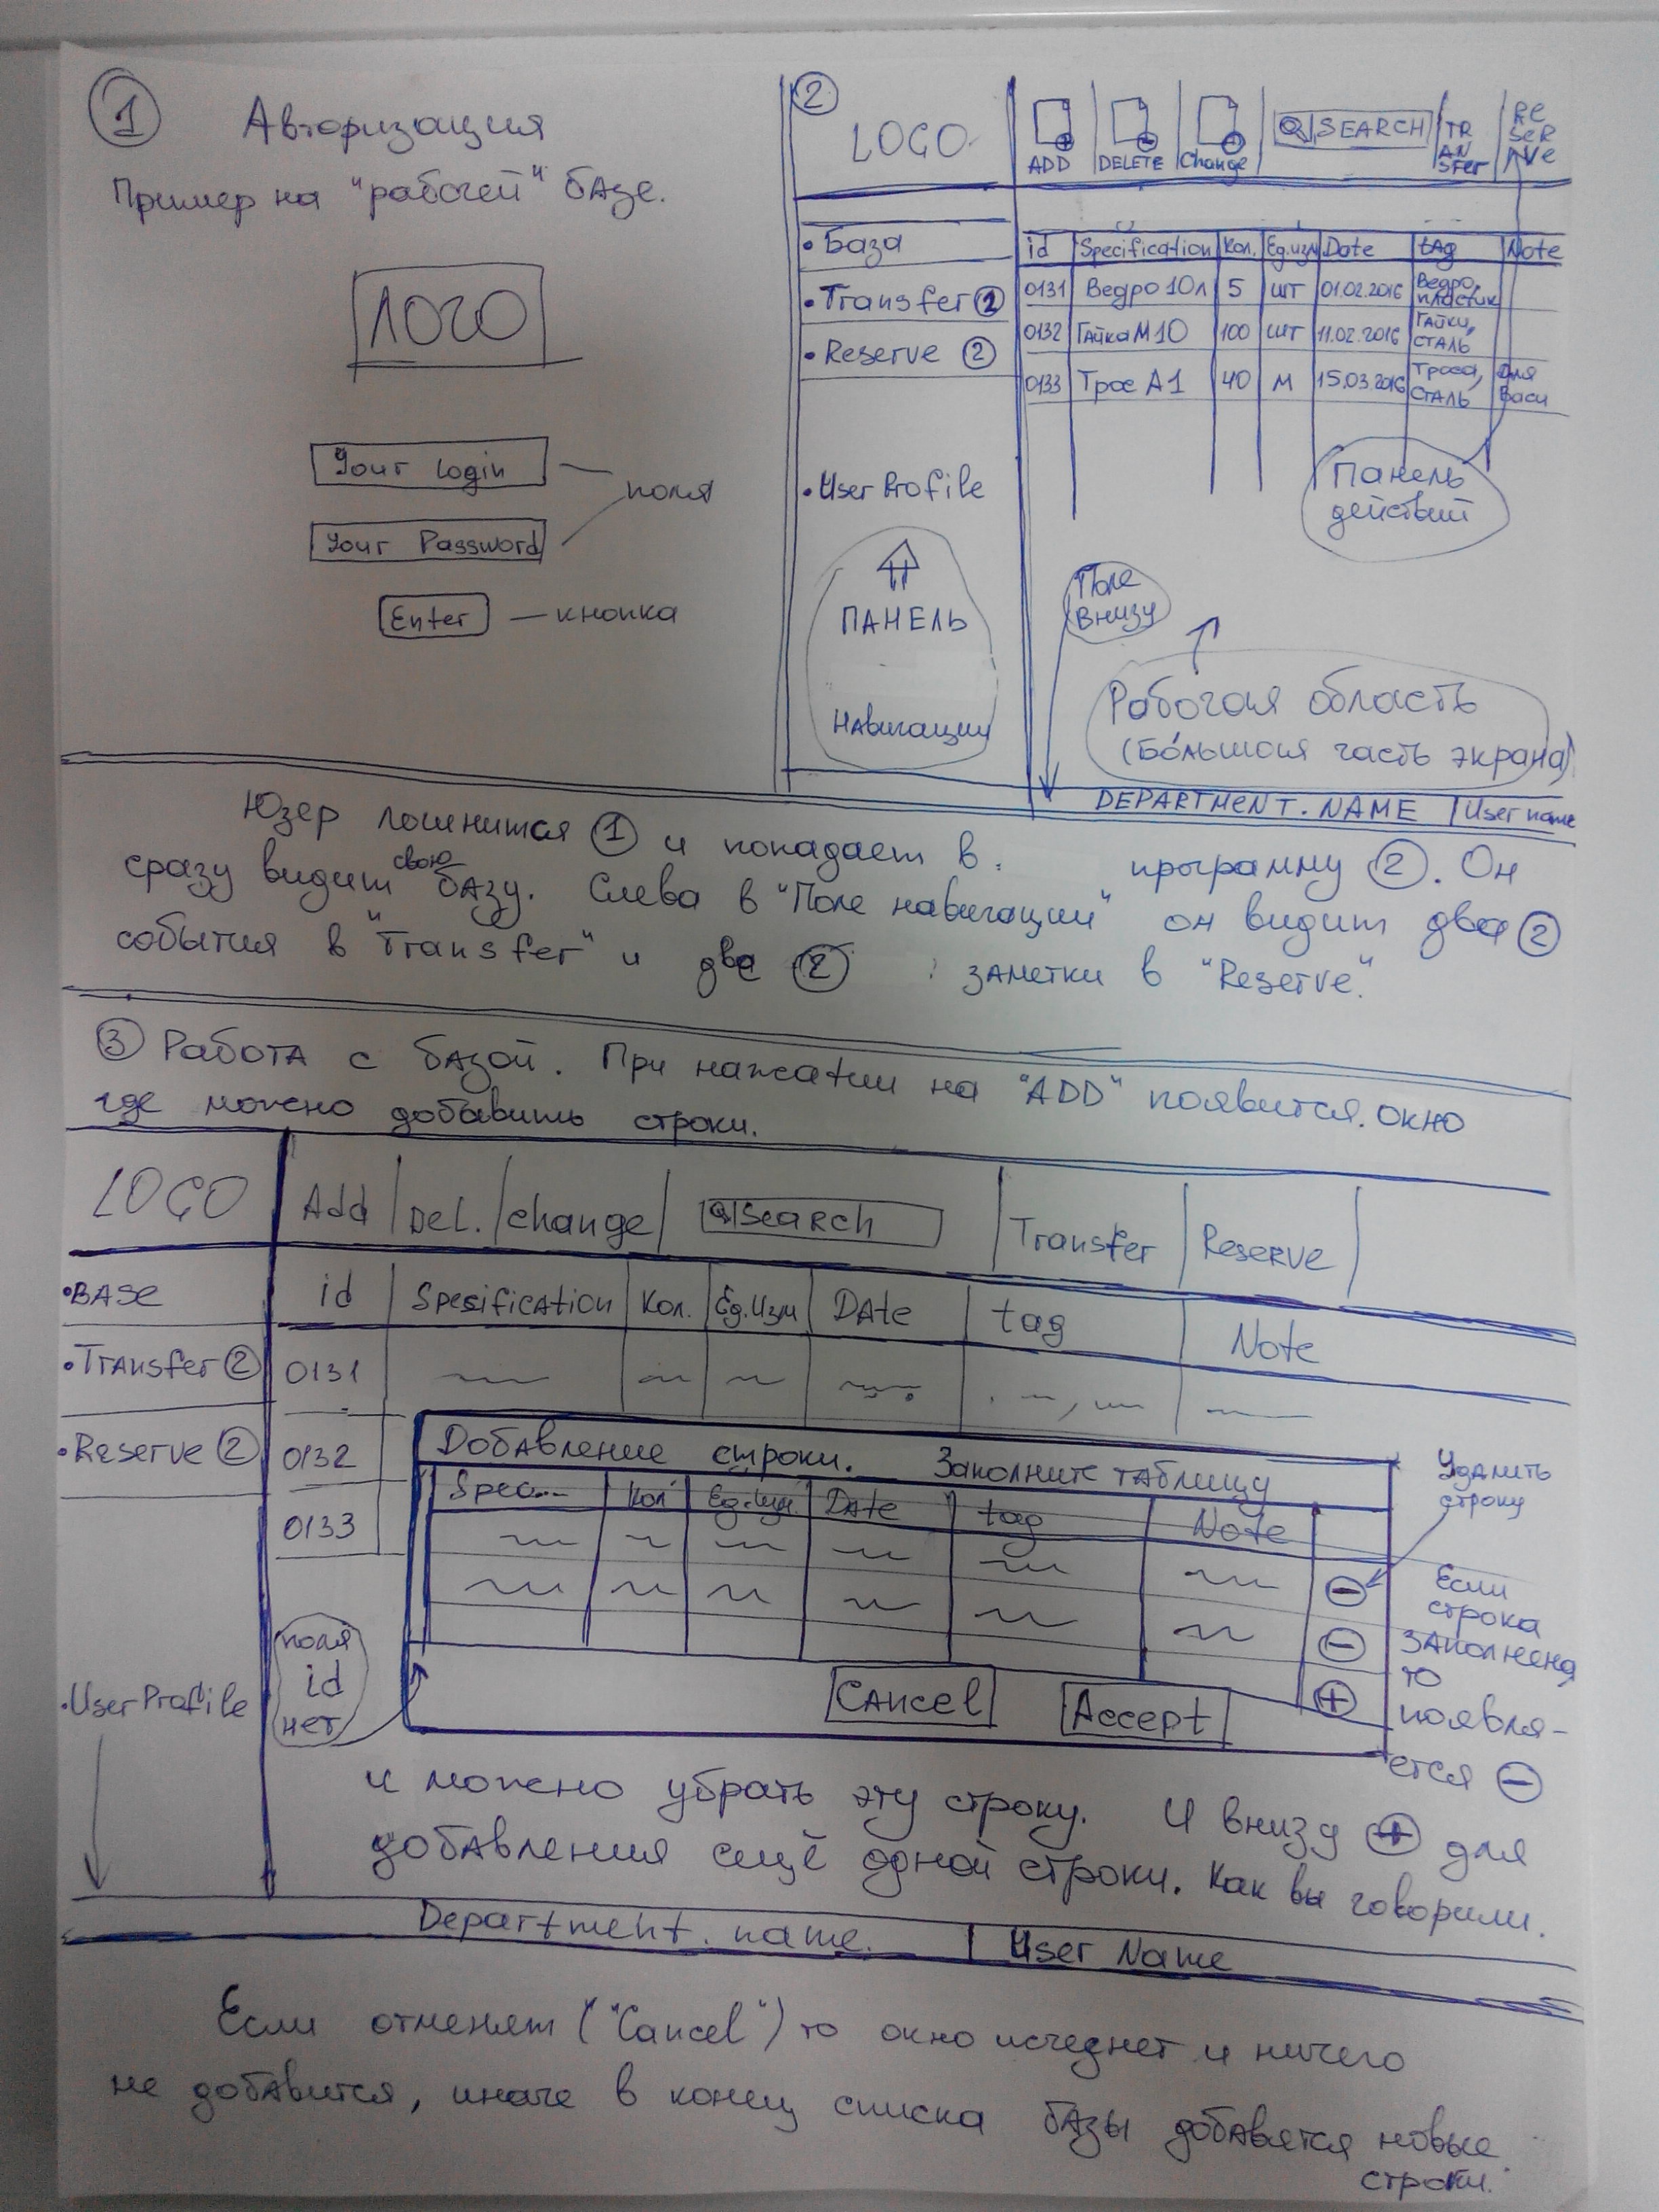 1 Авторизация
Пример на "рабочей" базе.
ЛОГО
Your Login
поля
Your Password
Enter — кнопка
2
LOGO
ADD
DELETE
Change
SEARCH
TRANsfer
ReSeRVe
• База
• Transfer 2
• Reserve 2
• User Profile
ПАНЕЛЬ
Навигации
id Specification Кол. Ед.изм Date tAg Note
0131 Ведро 10л 5 шт 01.02.2016 Ведро, пластик
0132 Гайка М10 100 шт 11.02.2016 Гайки, сталь
0133 Трос А1 40 м 15.03.2016 Троса, сталь Для Васи
Панель
действий
Поле
внизу
Рабочая область
(Бо́льшая часть экрана)
DEPARTMENT. NAME User name
Юзер логинится 1 и попадает в программу 2. Он
сразу видит свою базу. Слева в "Поле навигации" он видит два 2
события в "Transfer" и две 2 заметки в "Reserve".
3 Работа с базой. При нажатии на "ADD" появится окно
где можно добавить строки.
LOGO Add Del. change Search Transfer Reserve
• BASe
• Transfer 2
• Reserve 2
• User Profile
id Spesification Кол. Ед.Изм DAte tag Note
0131
0132
0133
Добавление строки. Заполните таблицу
Spec... Кол Ед.изм. DAte tag Note
Удалить
строку
Если
строка
заполнена
то
появля-
ется ⊖
поля
id
нет
Cancel Accept
и можно убрать эту строку. И внизу ⊕ для
добавления ещё одной строки. Как вы говорили.
Department. name. User Name
Если отменят ("Cancel") то окно исчезнет и ничего
не добавится, иначе в конец списка базы добавятся новые
строки.